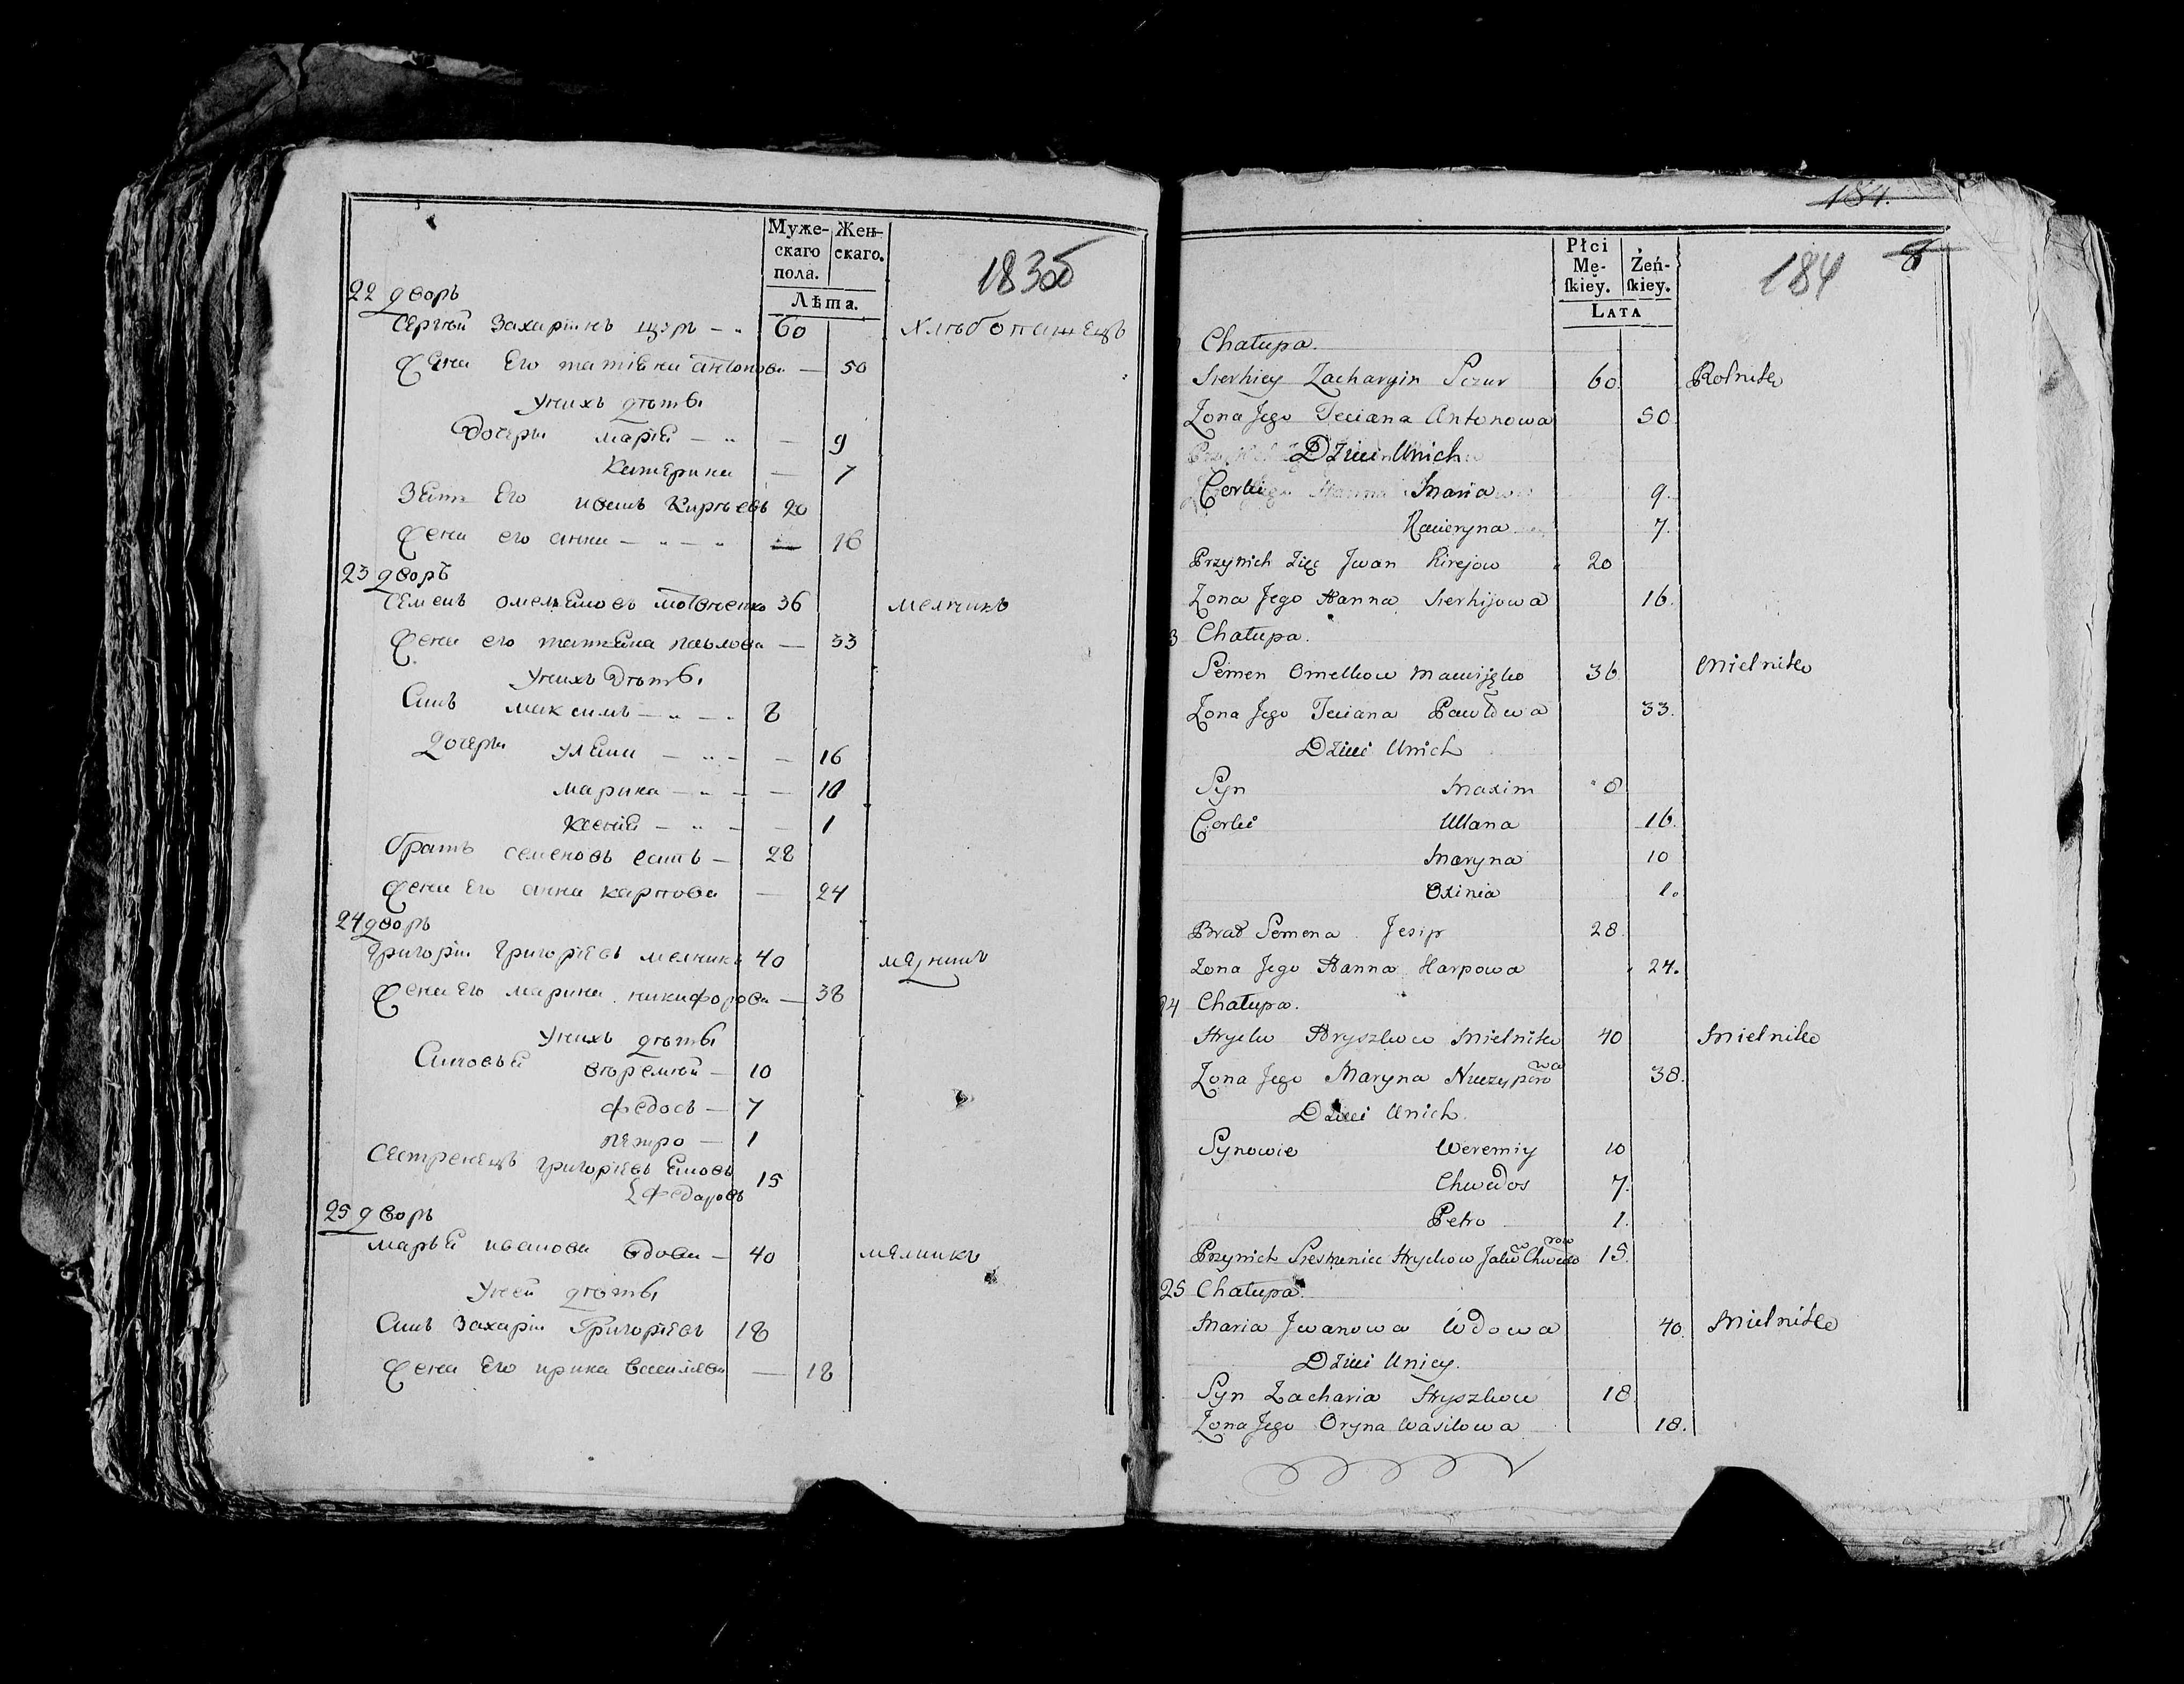 Муже-
скаго
пола.
Жен-
скаго.
Лѣта.
183об
22 дворъ
Сергѣй Захаринъ щуръ 60 Хлѣбопашецъ
жена Его татіена антонова — 50
Унихъ дѣты
дочеры марія — 9
Катерина — 7
Зять Его иванъ Кирѣевъ 20
жена его анна — 16
23 дворъ
Семенъ омелковъ 36 мелникъ
жена его татіена павлова — 33
Унихъ дѣты
Синъ максимъ — 8
Дочеры уляна — 16
марина — 10
Ксенія — 1
братъ семеновъ есипъ — 28
жена Его анна карпова — 24
24 дворъ
Григорій Григоріевъ мелникъ 40 мелникъ
жена Его марина никифорова — 38
Унихъ дѣты
Синовья еремѣй — 10
федосъ — 7
петро — 1
Сестренецъ григоріевъ яковъ 15
федоровъ
25 дворъ
марья иванова вдова — 40 мелникъ
Уней дѣты
Синъ Захарій Григоріевъ 18
жена Его ирина василева — 18
184.
Płci
Mę-
ſkiey.
Żeń-
ſkiey.
LATA
184
8
Chałupa.
Sierhiey Zacharyin Sczur 60 Rolnik
Zona Jego Teciana Antonowa 50
Dzieci Unich
Corki Maria 9.
Kateryna 7.
Przynich Zięć Jwan Kirejow 20
Zona Jego Hanna Sierhijowa 16.
3 Chałupa.
Semen Omelkow 36 Mielnik
Zona Jego Teciana Pawłowa 33.
Dzieci Unich
Syn Maxim 8
Corki Ulana 16.
Maryna 10
Oxinia 1.
Brat Semena Jesip 28
Zona Jego Hanna Harpowa 24.
24 Chałupa.
Hryćko Hryszkow Mielnik 40 Mielnik
Zona Jego Maryna Niczyporowa 38.
Dzieci Unich.
Synowie Weremiy 10
Chwedos 7.
Petro 1.
Przynich Siestrzeniec Hryćkow Jakow Chwedorow 15.
25 Chałupa.
Maria Jwanowa Wdowa 40. Mielnik
Dzieci Uniey.
Syn Zacharia Hryszkow 18
Zona Jego Oryna Wasilowa 18.